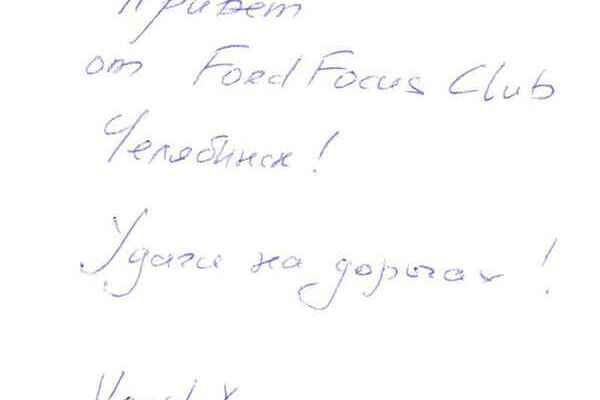 Привет
от Ford Focus Club
Челябинск!
Удачи на дорогах!